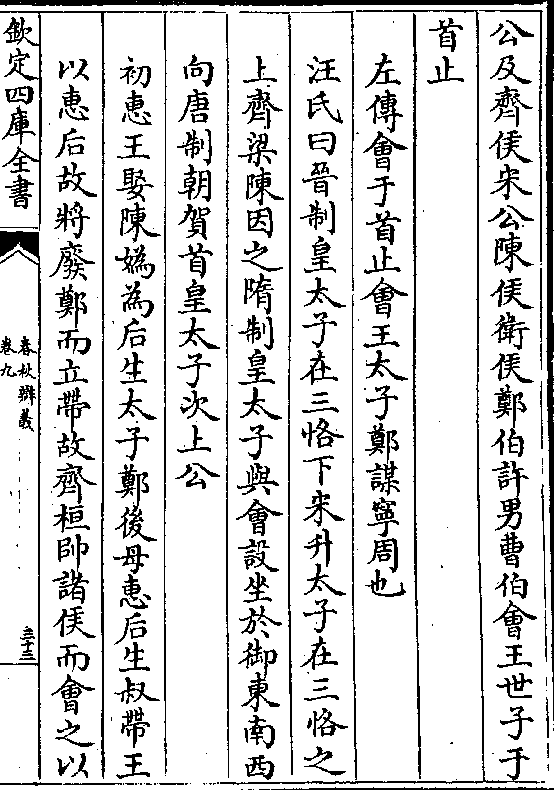 公及齊侯宋公陳侯衛侯鄭伯許男曹伯會王世子于
首止
左傳會于首止會王太子鄭謀寧周也
汪氏曰晉制皇太子在三恪下宋升太子在三恪之
上齊梁陳因之隋制皇太子與會設坐於御東南西
向唐制朝賀首皇太子次上公
初惠王娶陳媯為后生太子鄭後母惠后生叔帶王
以惠后故將廢鄭而立帶故齊桓帥諸侯而會之以
欽定四庫全書
春秋辯義
卷九
三十三